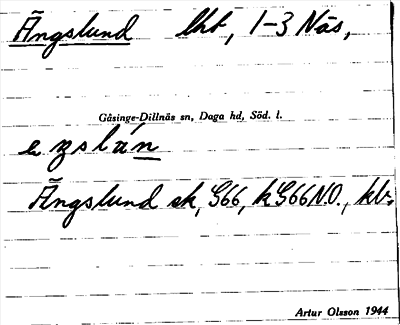 Ängslund lht, 1-3 Näs,
Gåsinge-Dillnäs sn, Daga hd, Söd. l.
Ängslund sk, G66, k G66 N.O., kb,
Artur Olsson 1944